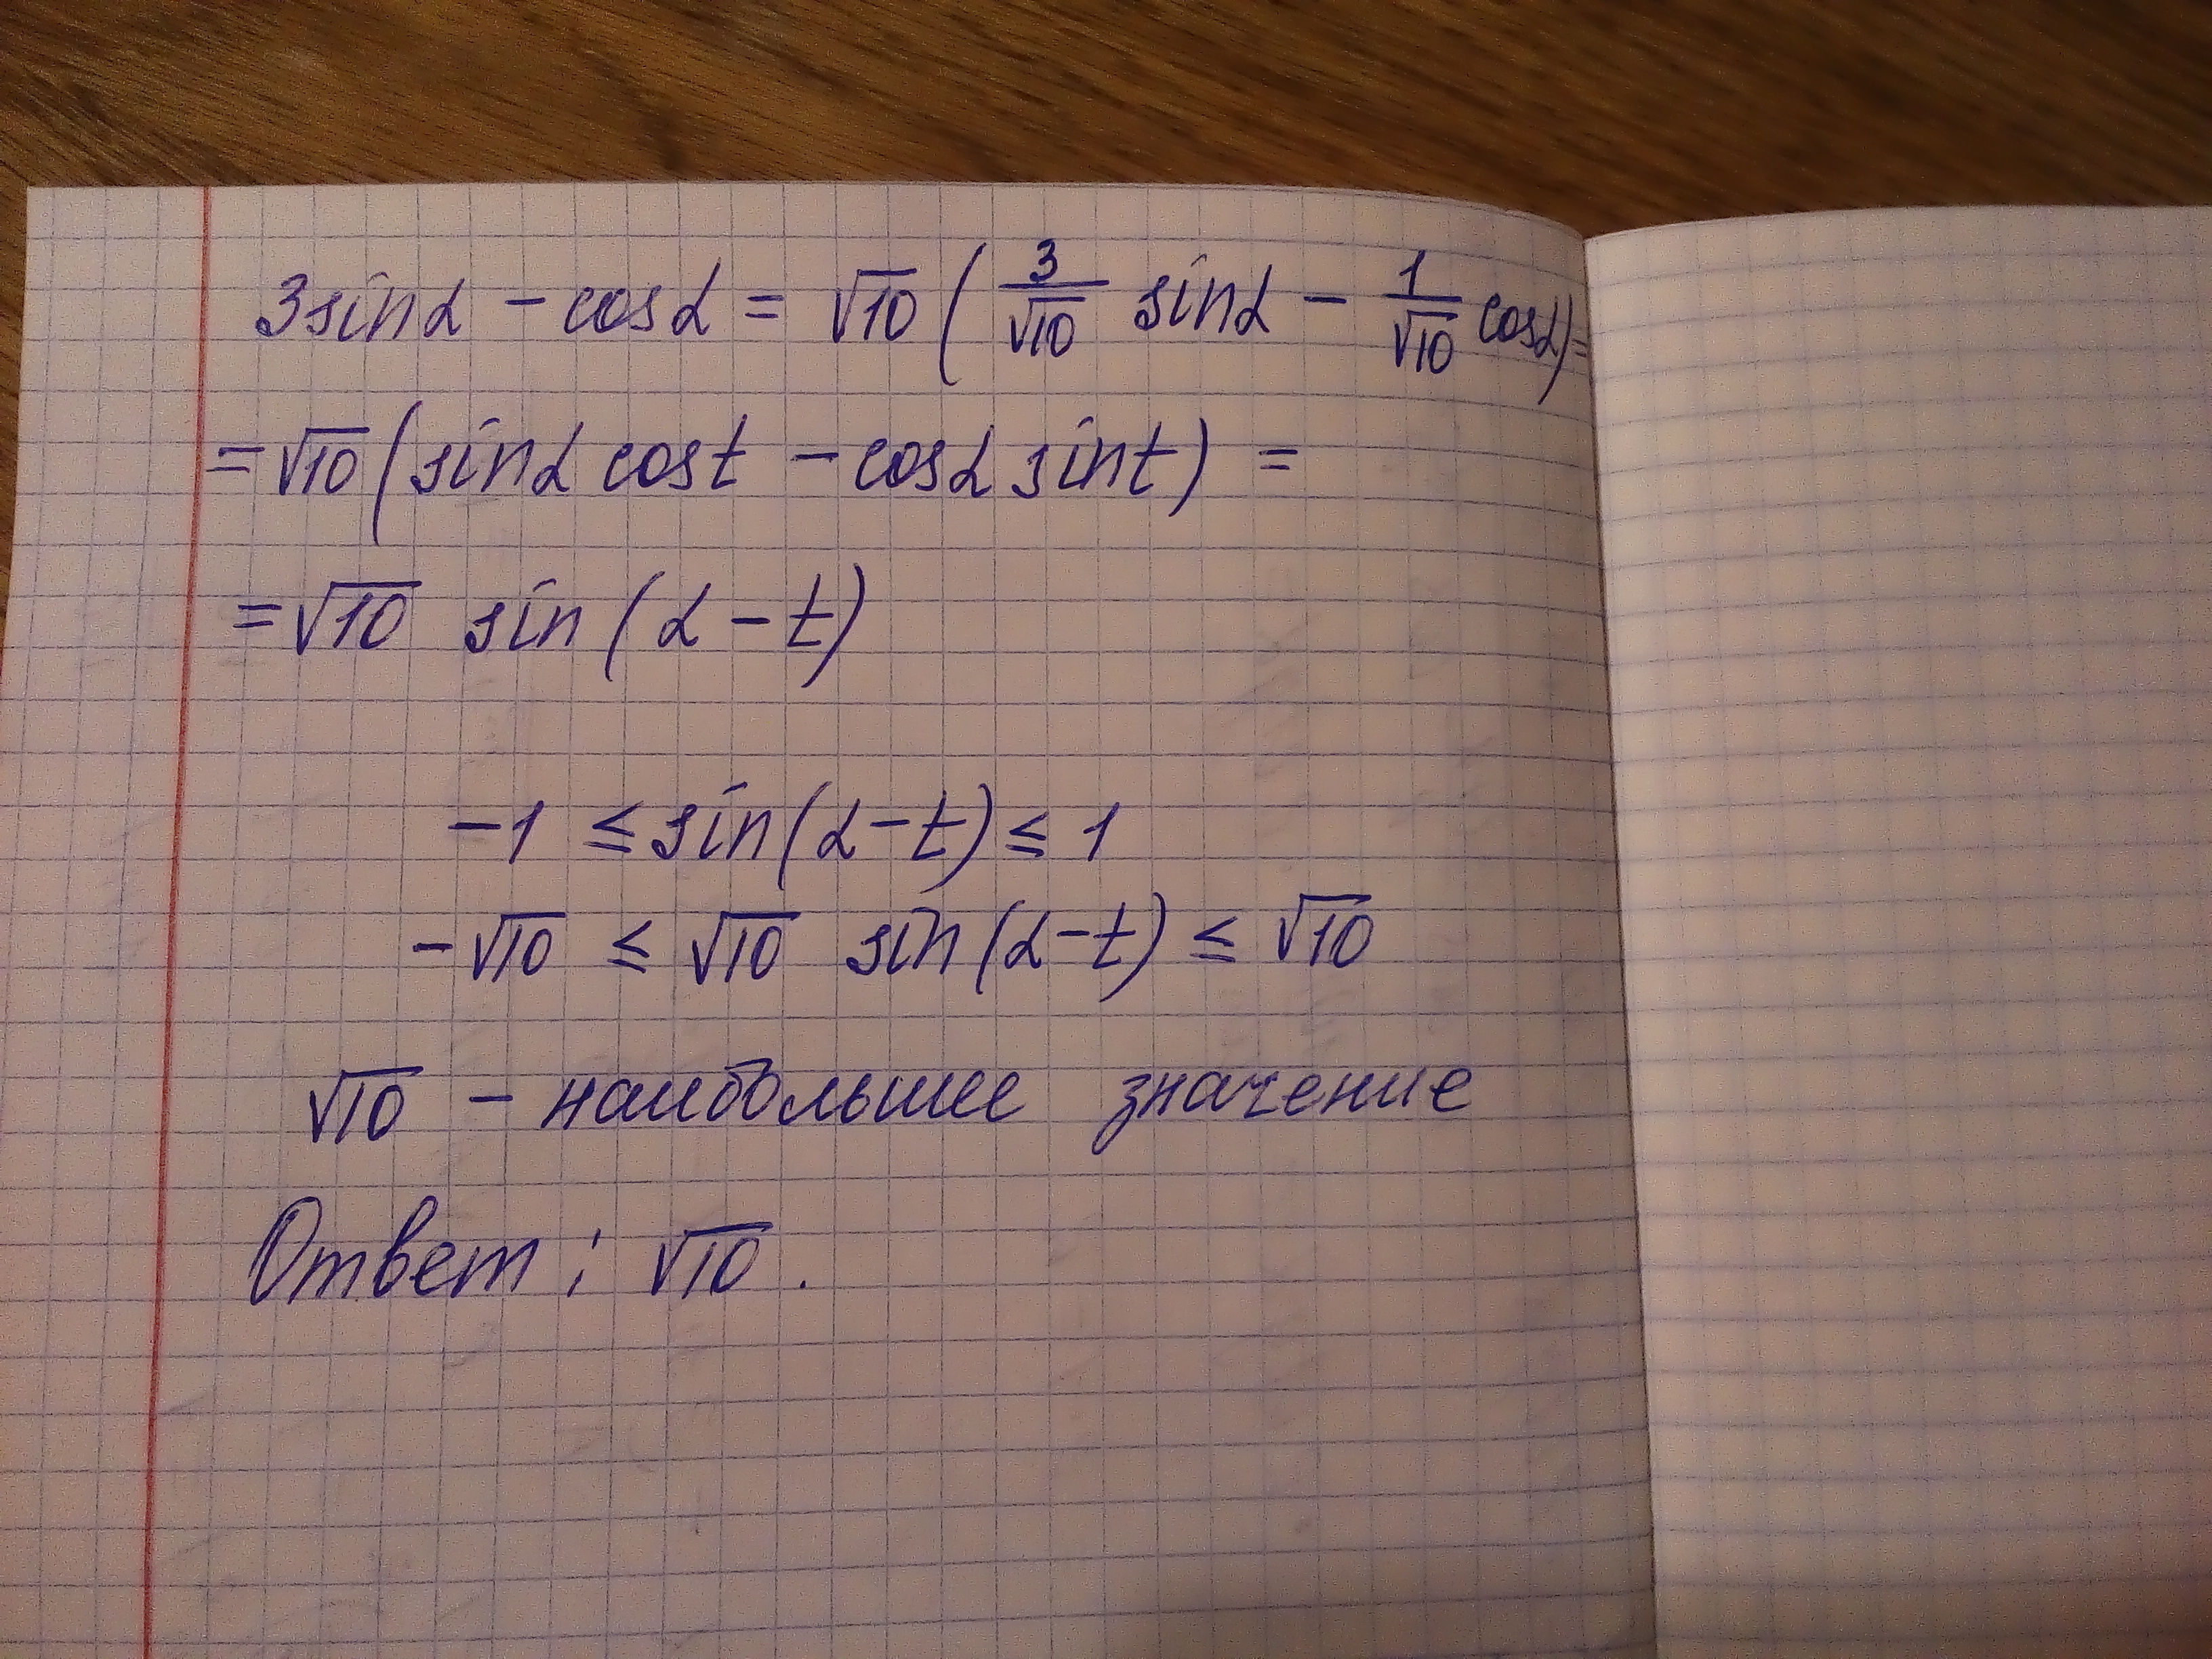 3sinα − cosα = √10 ( 3/√10 sinα − 1/√10 cosα) =
= √10 (sinα cost − cosα sint) =
= √10 sin (α − t)
−1 ≤ sin(α − t) ≤ 1
−√10 ≤ √10 sin(α − t) ≤ √10
√10 − наибольшее значение
Ответ: √10.